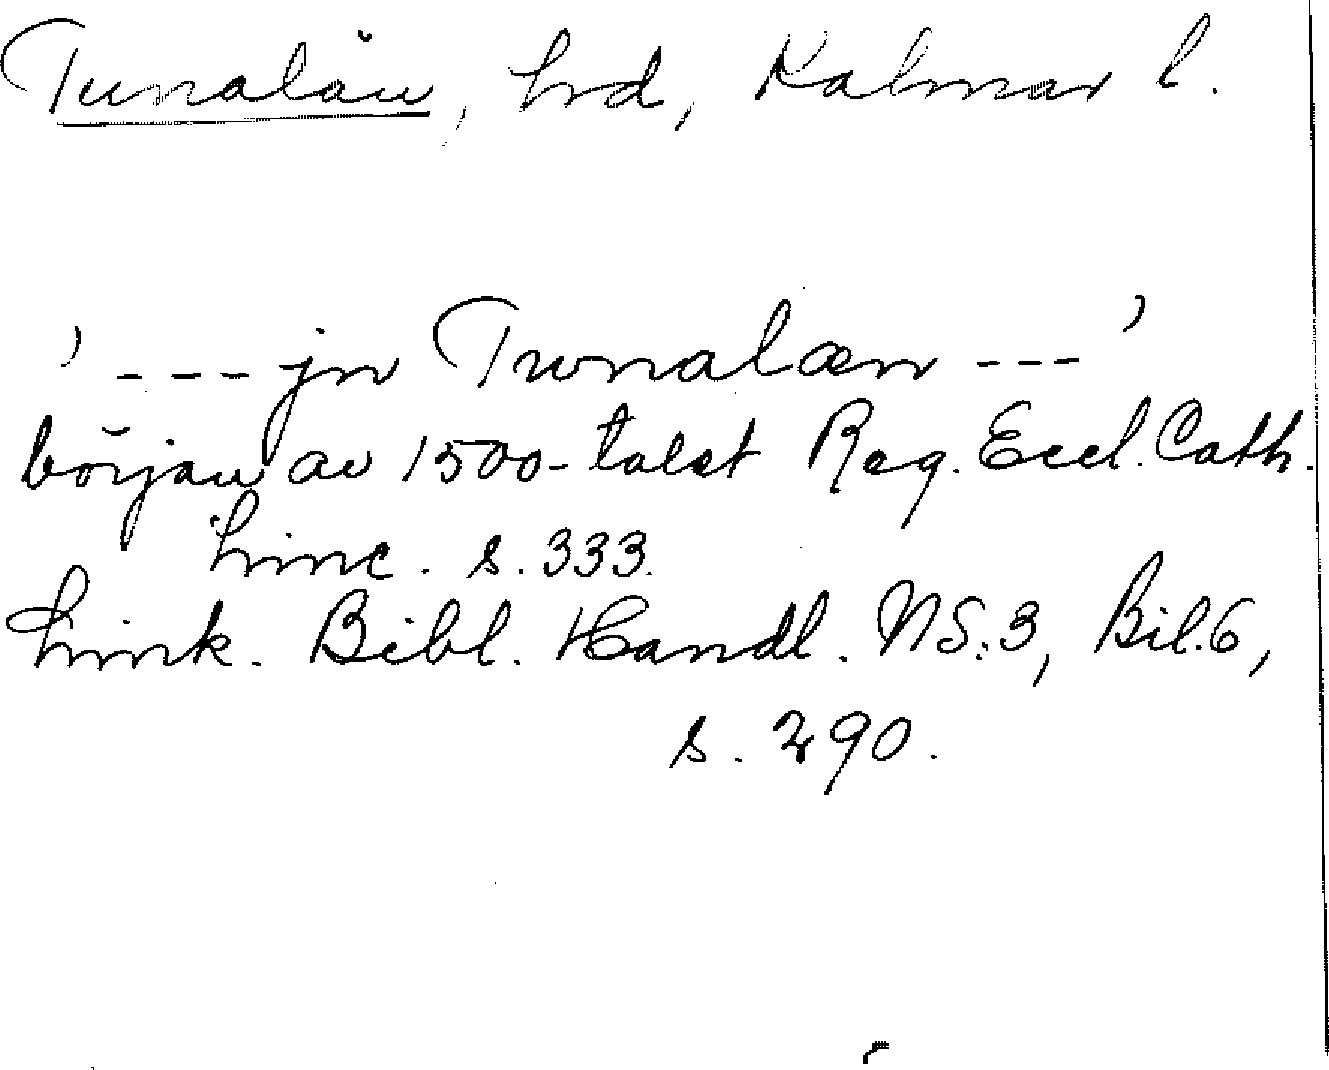 Tunalän, hrd, Kalmar l.
' --- jn Twnalæn --- '
början av 1500-talet Reg. Eccl. Cath.
Linc. s. 333.
Link. Bibl. Handl. NS:3, Bil.6,
s. 290.